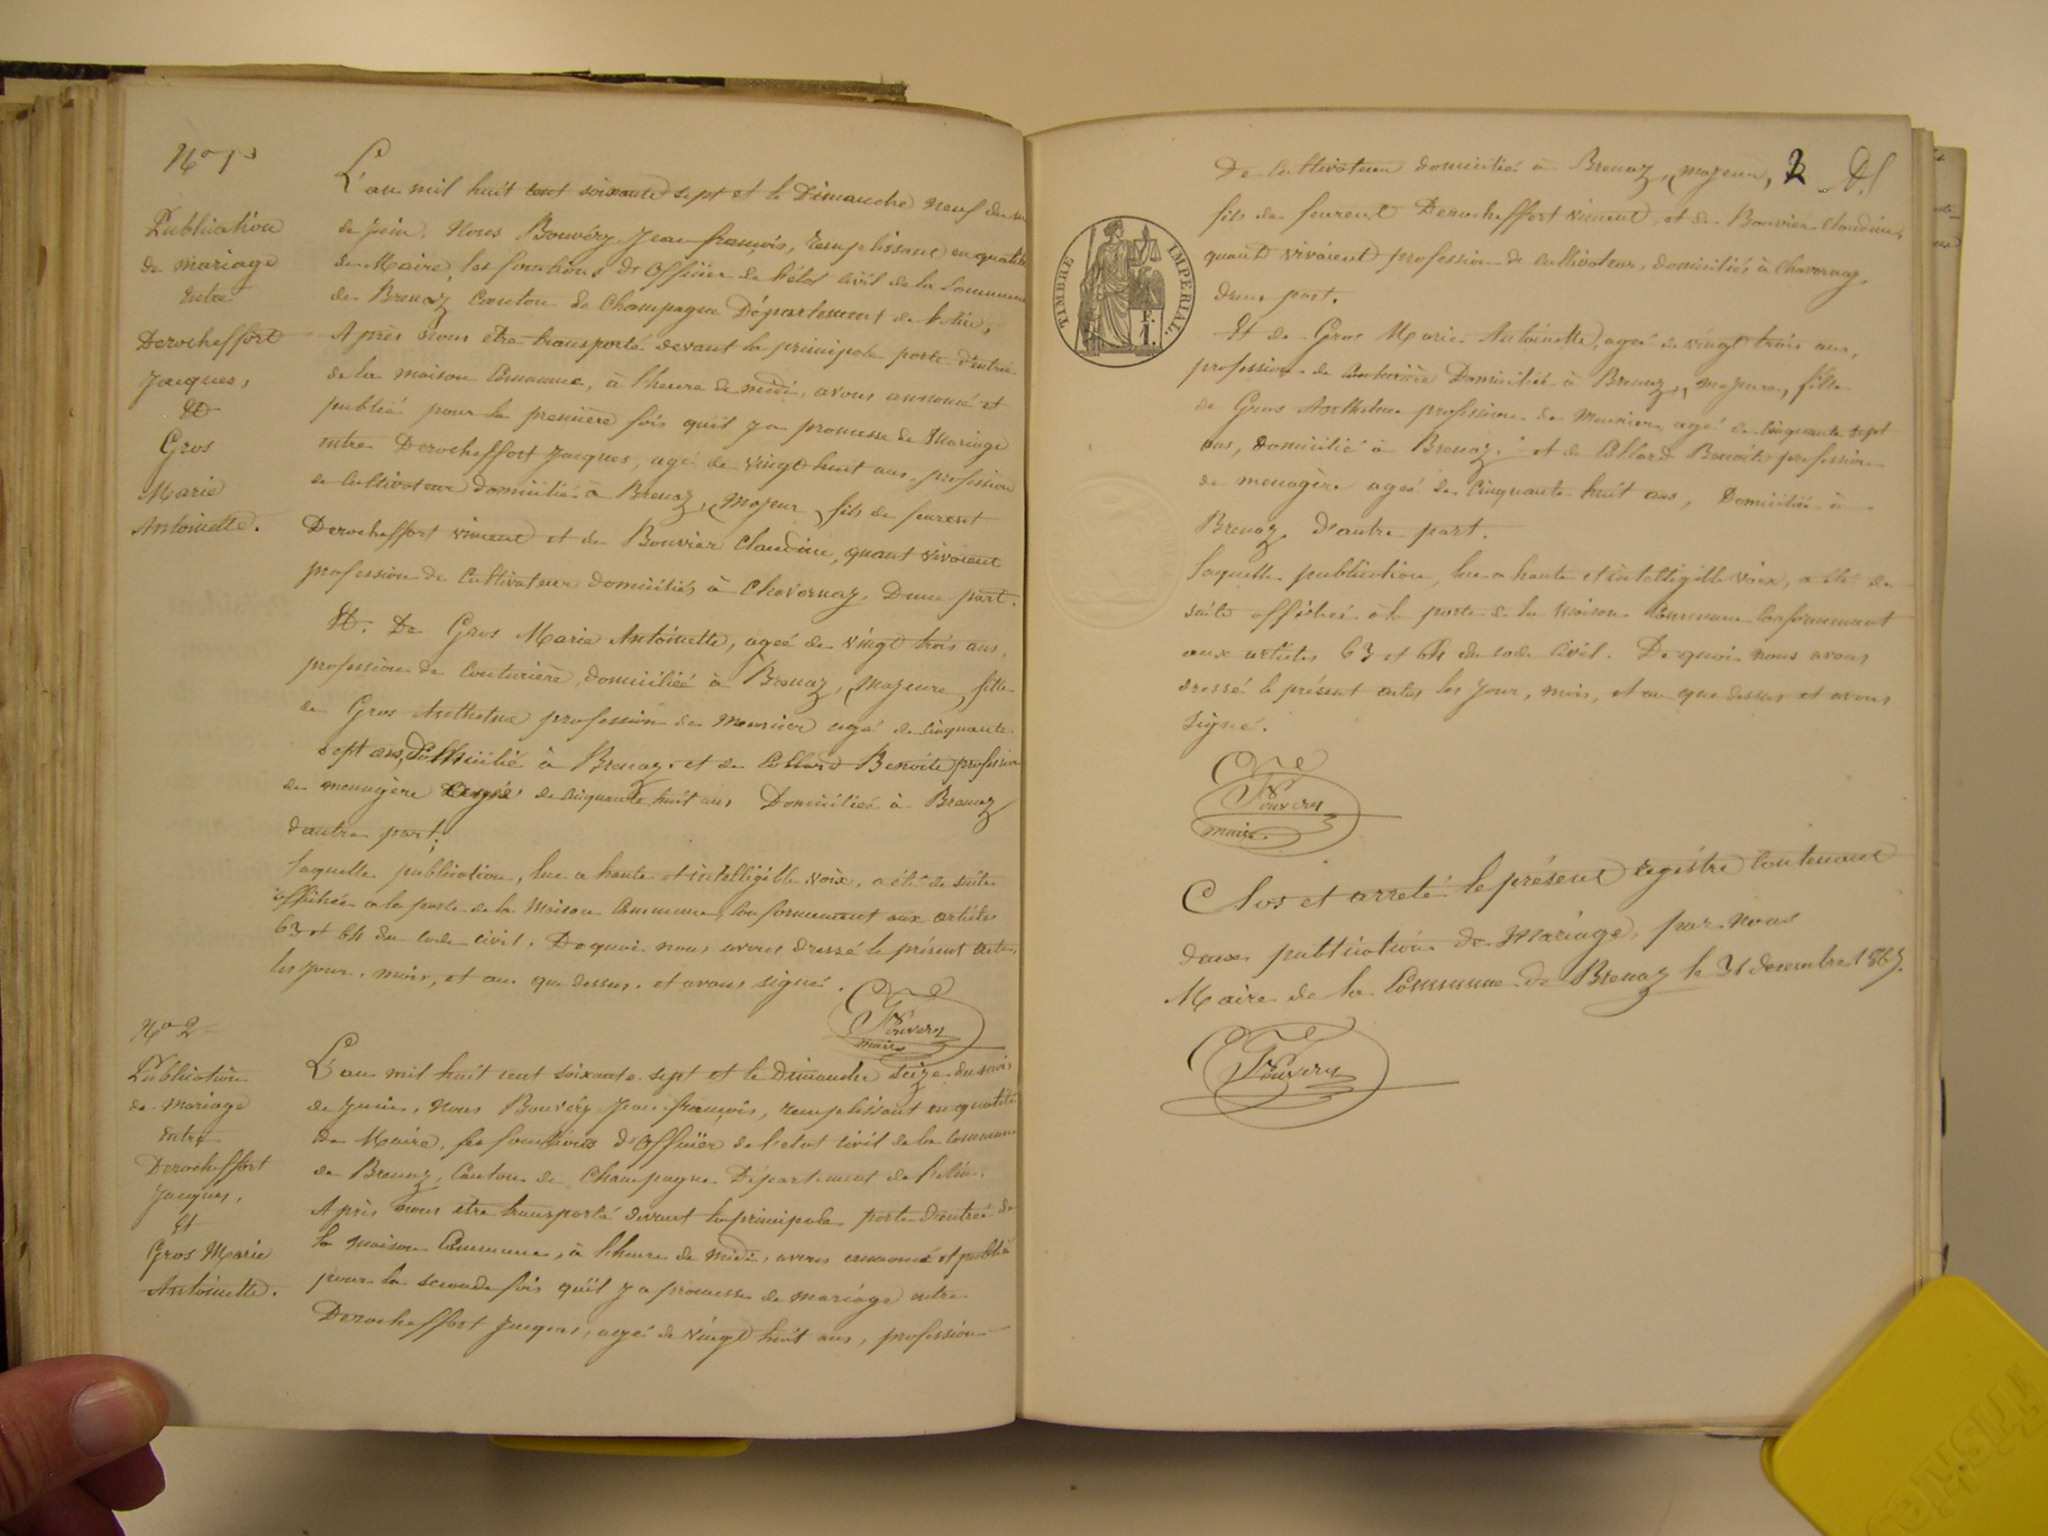 No 1
Publication
de mariage
entre
Derocheffort
Jacques,
Et
Gros
Marie
Antoinette.
L'an mil huit cent soixante sept et le Dimanche neuf du
de juin, Nous Bouvéry Jean françois, remplissant en qualité
de Maire, les fonctions d'Officier de l'état civil de la Commune
de Brenaz Canton de Champagne Département de l'ain,
Après nous être transporté devant la principale porte d'entrée
de la maison Commune, à l'heure de midi, avons annoncé et
publié pour la première fois qu'il y a promesse de Mariage
entre Derocheffort Jacques, agé de vingt huit ans, profession
de Cultivateur domicilié à Brenaz, Majeur, fils de feurent
Derocheffort vincent et de Bouvier Claudine, quant vivaient
profession de Cultivateur domiciliés à Chavornay, D'une part.
Et. De Gros Marie Antoinette, ageé de vingt trois ans,
profession de Couturière, domiciliée à Brenaz, Majeure, fille
de Gros Anthelme profession de Meunier agé de cinquante
sept ans, Domicilié à Brenaz et de Collard Benoite profession
de menagère agée de cinquante huit ans Domiciliée à Brenaz
d'autre part.
Laquelle publication, lue a haute et intelligible voix, a été de suite
affichée a la porte de la Maison Commune, conformement aux articles
63 et 64 du code civil. De quoi nous avons dressé le présent acte,
les jour, mois, et an que dessus, et avons signé.
Bouvery
maire
No 2
Publication
de Mariage
entre
Derocheffort
Jacques,
Et
Gros Marie
Antoinette.
L'an mil huit cent soixante sept et le Dimanche seize du mois
de Juin, Nous Bouvéry Jean françois, remplissant en qualité
de Maire, les fonctions d'Officier de l'etat civil de la Commune
de Brenaz, Canton de Champagne Département de l'ain.
Après nous etre transporté devant la principale porte d'entrée de
la Maison Commune, à l'heure de midi, avons annoncé et publié
pour la seconde fois qu'il y a promesse de mariage entre
Derocheffort Jacques, agé de vingt huit ans, profession
De Cultivateur domicilié à Brenaz, Majeur, 2
fils de feurent Derocheffort vincent, et de Bouvier Claudine,
quant vivaient profession de Cultivateur, domiciliés à Chavornay,
d'une part.
Et de Gros Marie Antoinette, ageé de vingt trois ans,
profession de Couturière Domiciliée à Brenaz, Majeure, fille
de Gros Anthelme profession de Meunier, agé de cinquante sept
ans, domicilié à Brenaz, et de Collard Benoite profession
de menagère ageé de cinquante huit ans, Domiciliée à
Brenaz, d'autre part.
Laquelle publication, lue a haute et intelligible voix, a été de
suite affichée à la porte de la Maison Commune conformement
aux articles 63 et 64 du code Civil. De quoi nous avons
dressé le présent actes les Jour, mois, et an que dessus et avons
signé.
Bouvery
maire.
Clos et arreté le présent registre Contenant
deux publication de Mariage, par Nous
Maire de la Commune de Brenaz le 31 decembre 1867.
Bouvery
TIMBRE IMPÉRIAL.
F.
1.